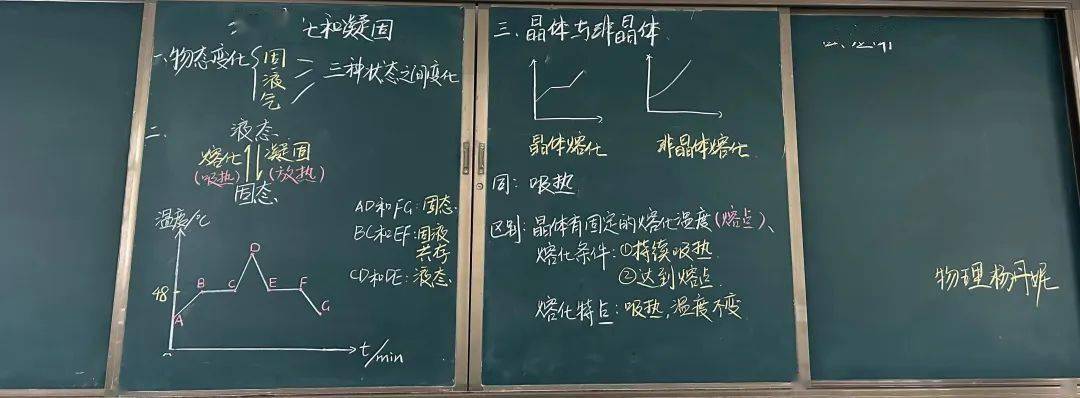 化和凝固
一、物态变化
固
液
气
三种状态之间变化
二、
液态
熔化
(吸热)
凝固
(放热)
固态
温度/℃
48
A
B
C
D
E
F
G
0
t/min
AD和FG：固态
BC和EF：固液
共存
CD和DE：液态
三、晶体与非晶体
晶体熔化
非晶体熔化
同：吸热
区别：晶体有固定的熔化温度(熔点)、
熔化条件：①持续吸热
②达到熔点
熔化特点：吸热，温度不变
物理 杨丹妮